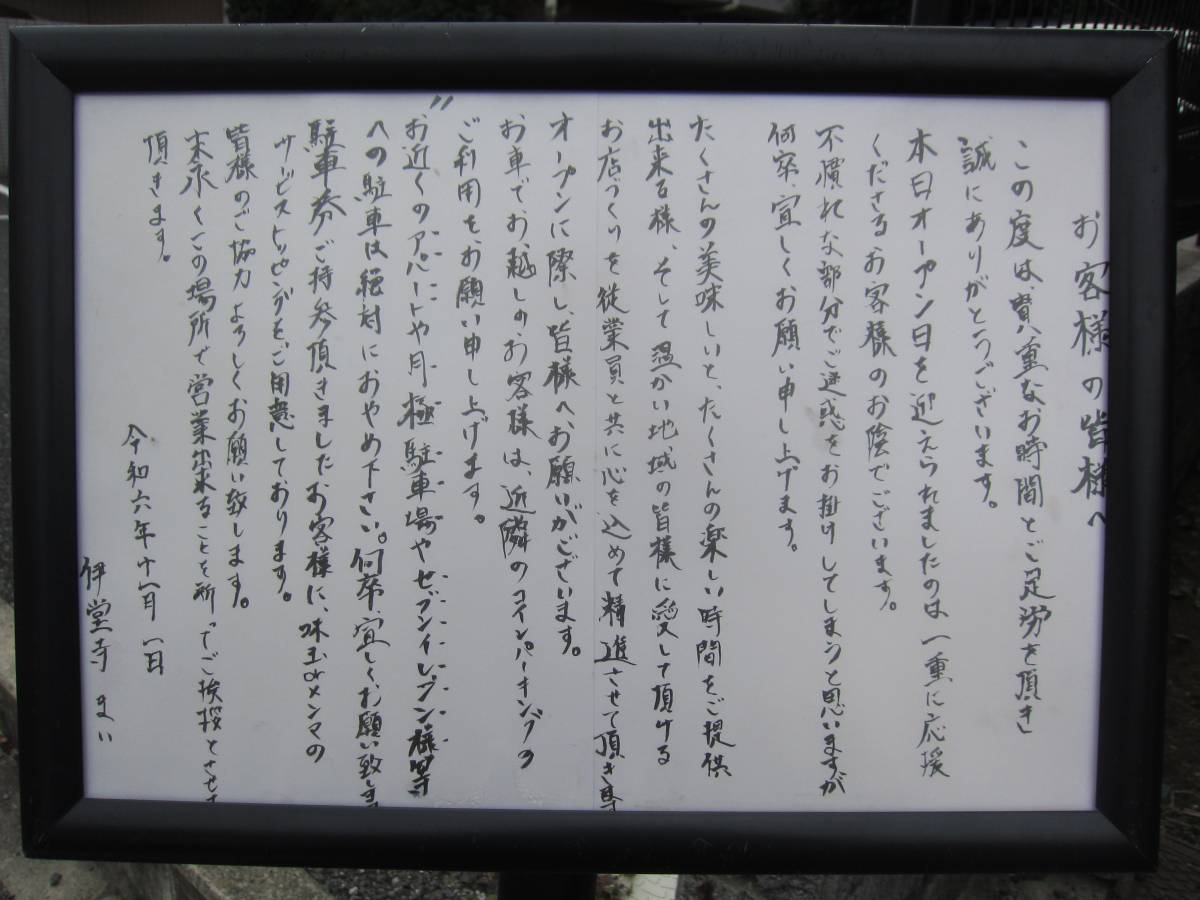 お客様の皆様へ
この度は、貴重なお時間とご足労を頂き
誠にありがとうございます。
本日オープン日を迎えられましたのは一重に応援
くださるお客様のお陰でございます。
不慣れな部分でご迷惑をお掛けしてしまうと思いますが
何卒、宜しくお願い申し上げます。
たくさんの美味しいと、たくさんの楽しい時間をご提供
出来る様、そして温かい地域の皆様に愛して頂ける
お店づくりを従業員と共に心を込めて精進させて頂き
オープンに際し、皆様へお願いがございます。
お車でお越しのお客様は、近隣のコインパーキングの
ご利用をお願い申し上げます。
"お近くのアパートや月極駐車場やセブンイレブン様等
への駐車は絶対におやめ下さい。何卒、宜しくお願い致しま
駐車券ご持参頂きましたお客様に、味玉orメンマの
サービストッピングをご用意しております。
皆様のご協力よろしくお願い致します。
末永くこの場所で営業出来ることを祈ってご挨拶とさせ
頂きます。
令和六年十一月一日
伊堂寺 まい